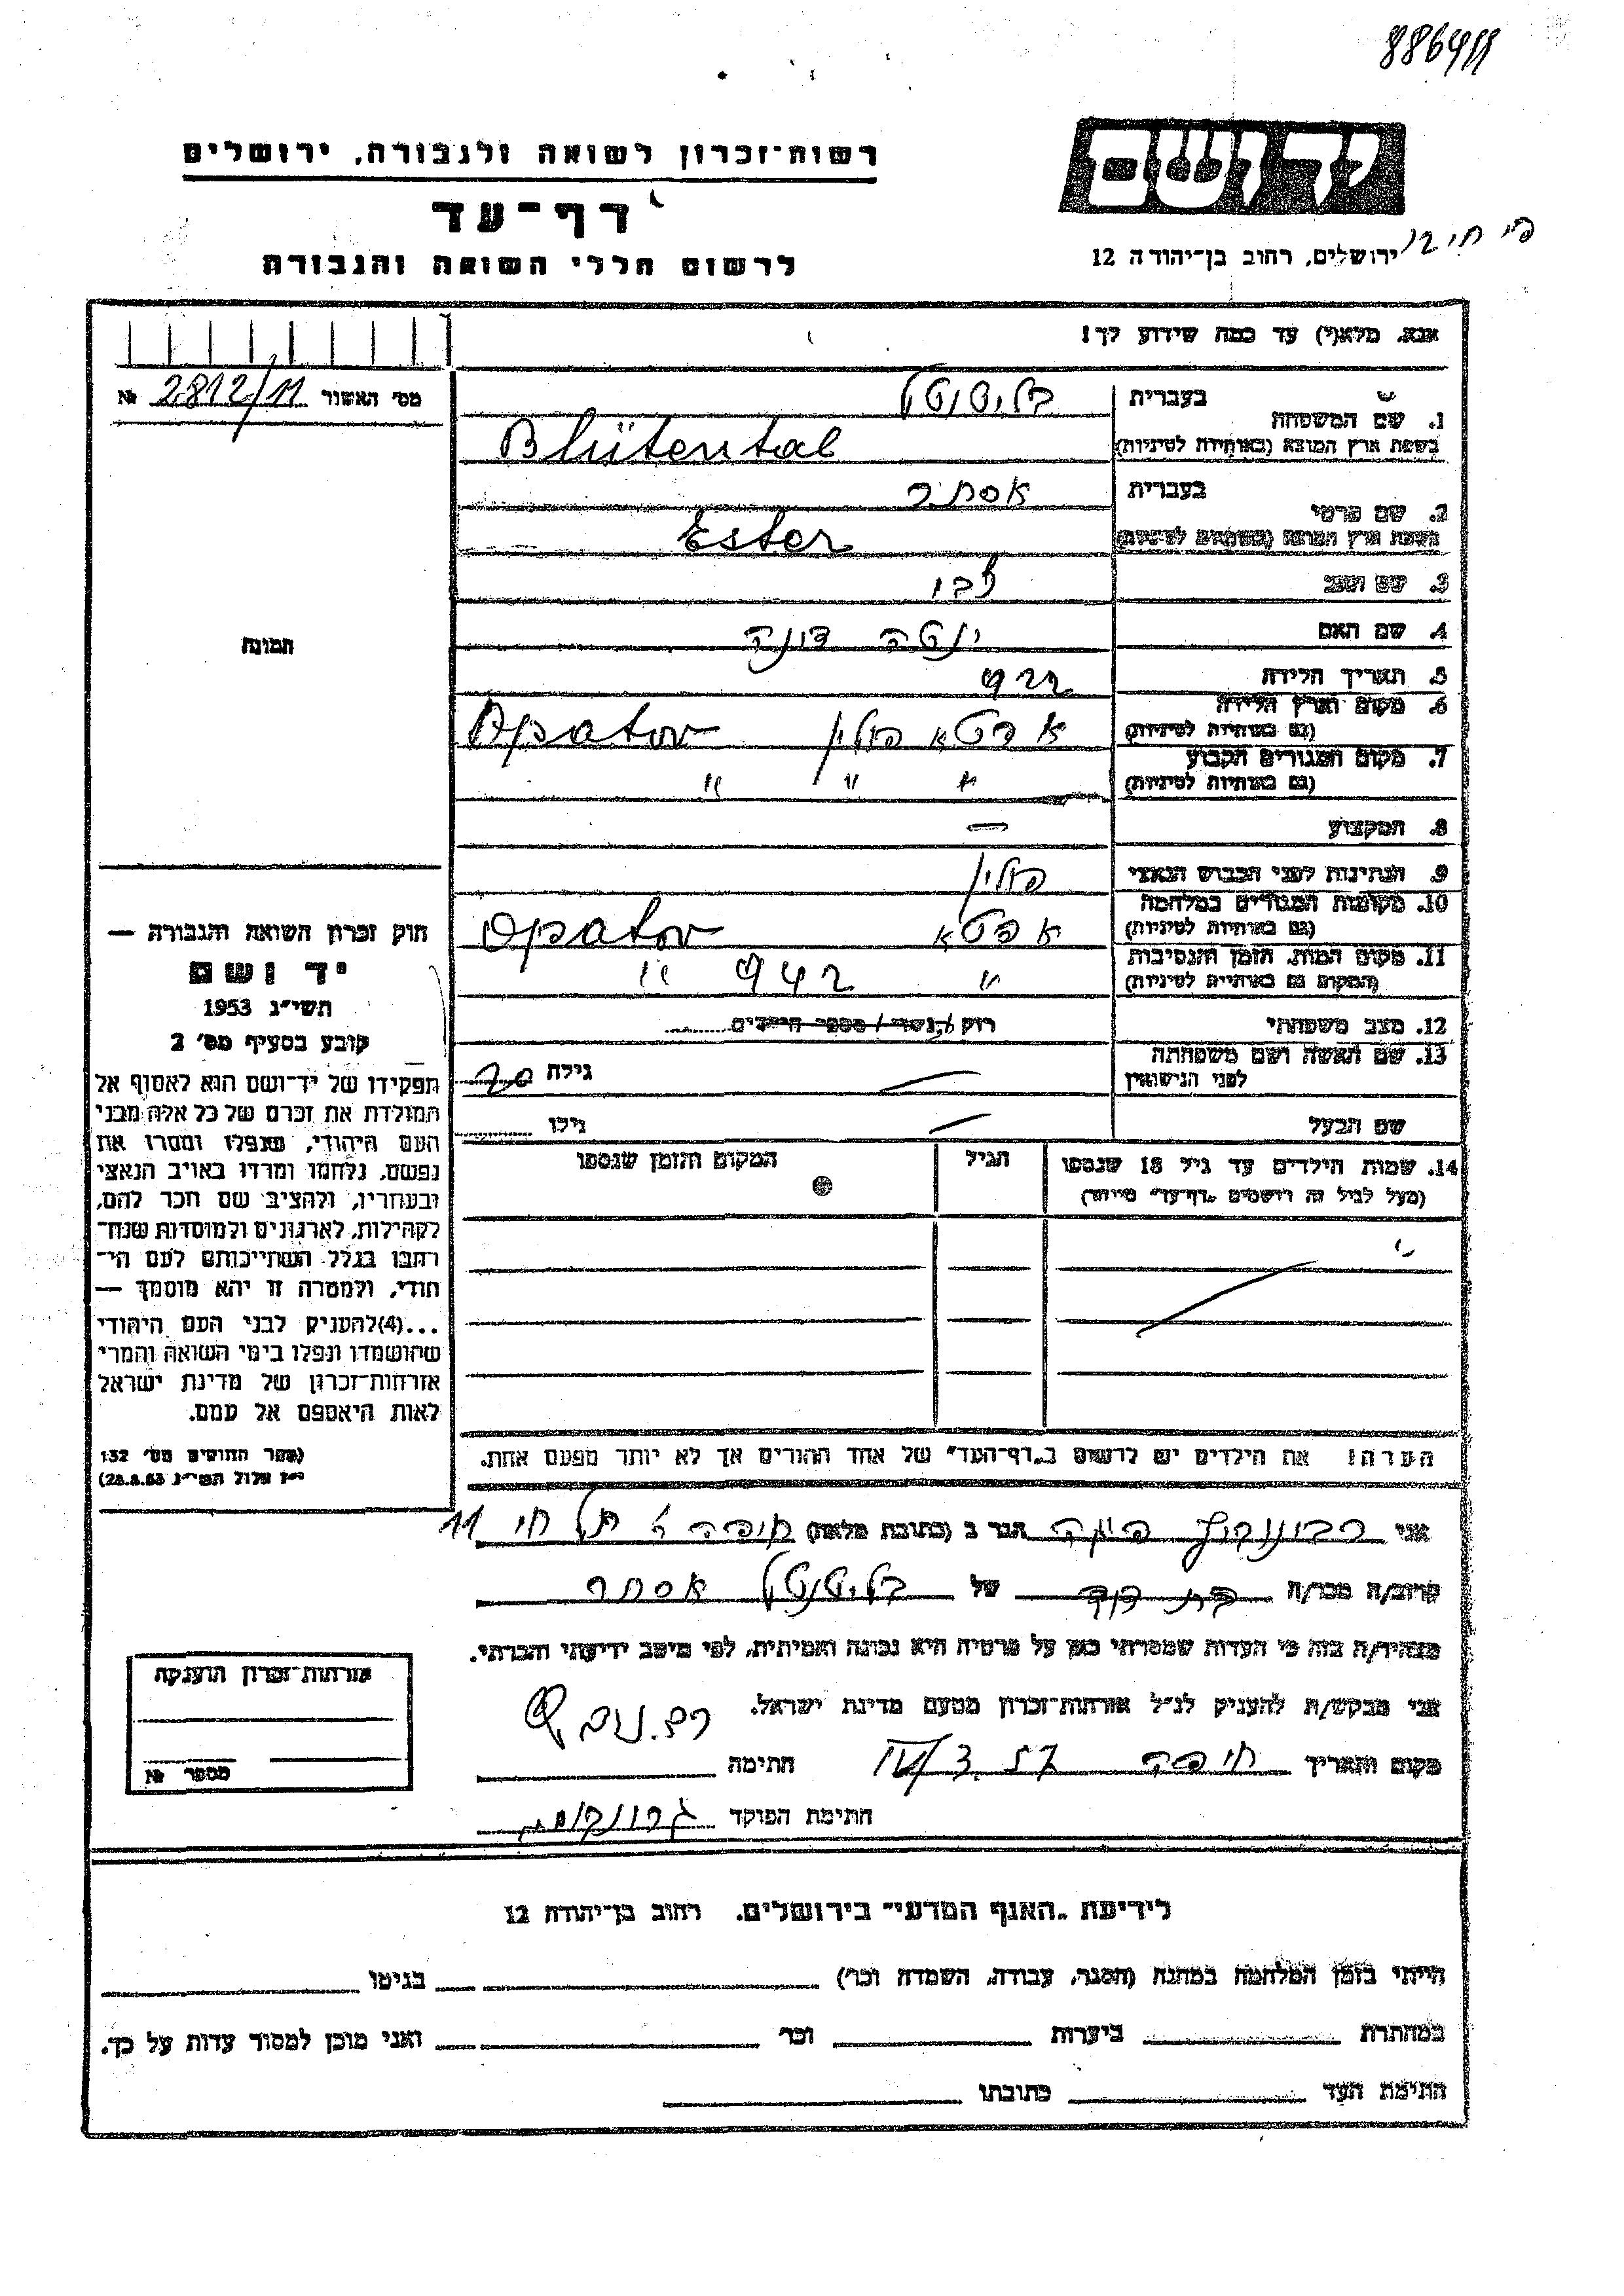 886411
רשות־זכרון לשואה ולגבורה, ירושלים
יד ושם
דף־עד
ירושלים, רחוב בן־יהודה 12
לרשום חללי השואה והגבורה
אנא, מלא(י) עד כמה שידוע לך!
מס׳ האשור 2812/11 №
1. שם המשפחה
בעברית בליטנטל
בשפת ארץ המוצא (באותיות לטיניות) Blütental
2. שם פרטי
בעברית אסתר
בשפת ארץ המוצא (באותיות לטיניות) Ester
3. שם האב לבי
4. שם האם יטה דונה
5. תאריך הלידה 922
6. מקום וארץ הלידה
(גם באותיות לטיניות) אפטא פולין Opatov
7. מקום המגורים הקבוע
(גם באותיות לטיניות) " " "
8. המקצוע —
9. הנתינות לפני הכבוש הנאצי פולין
10. מקומות המגורים במלחמה
(גם באותיות לטיניות) אפטא Opatov
11. מקום המות, הזמן והנסיבות
(המקום גם באותיות לטיניות) " 942 "
12. מצב משפחתי רוק/ה נשוי/ מספר הילדים
13. שם האשה ושם משפחתה
לפני הנישואין — גילה 20
שם הבעל — גילו
14. שמות הילדים עד גיל 18 שנספו
(מעל לגיל זה רושמים „דף־עד” מיוחד)
הגיל
המקום והזמן שנספו
הערה: את הילדים יש לרשום ב„דף־העד” של אחד ההורים אך לא יותר מפעם אחת.
תמונה
חוק זכרון השואה והגבורה —
יד ושם
תשי״ג 1953
קובע בסעיף מס׳ 2
תפקידו של יד־ושם הוא לאסוף אל
המולדת את זכרם של כל אלה מבני
העם היהודי, שנפלו ומסרו את
נפשם, נלחמו ומרדו באויב הנאצי
ובעוזריו, ולהציב שם וזכר להם,
לקהילות, לארגונים ולמוסדות שנח־
רבו בגלל השתייכותם לעם הי־
הודי, ולמטרה זו יהא מוסמך —
...(4)להעניק לבני העם היהודי
שהושמדו ונפלו בימי השואה והמרי
אזרחות־זכרון של מדינת ישראל
לאות היאספם אל עמם.
(ספר החוקים מס׳ 132
י״ז אלול תשי״ג 28.8.53)
אני הגר ב (כתובת מלאה) חיפה תל חי 11
קרוב/ה מכר/ה בת דוד של בליטנטל אסתר
מצהיר/ה בזה כי העדות שמסרתי כאן על פרטיה היא נכונה ואמיתית, לפי מיטב ידיעתי והכרתי.
אני מבקש/ת להעניק לנ״ל אזרחות־זכרון מטעם מדינת ישראל.
מקום ותאריך חיפה חתימה
חתימת הפוקד
אזרחות־זכרון הוענקה
מספר №
לידיעת „האגף המדעי” בירושלים, רחוב בן־יהודה 12
הייתי בזמן המלחמה במחנה (הסגר, עבודה, השמדה וכו׳) בגיטו
במחתרת ביערות וכו׳ ואני מוכן למסור עדות על כך.
חתימת העד כתובתו